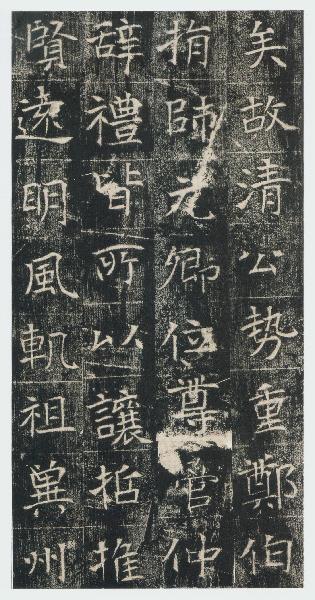 矣故清公势重鄭伯
捐師光卿位尊管仲
辞禮皆所以讓哲推
賢遠明風軌祖冀州